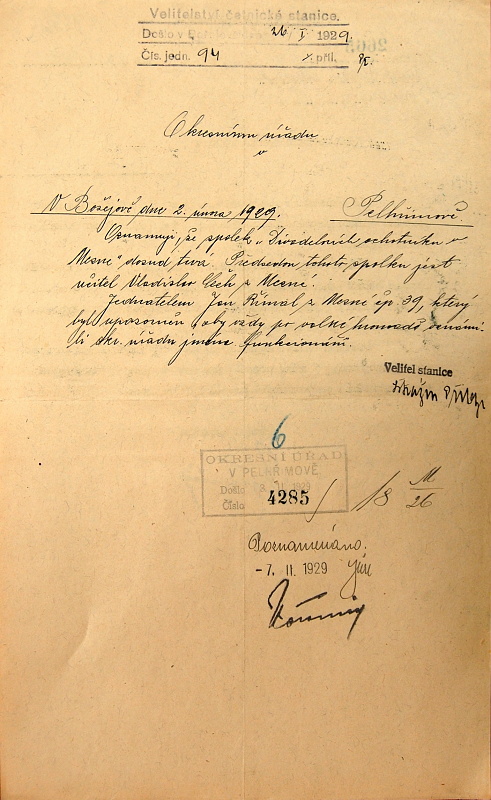 Velitelství četnické stanice.
Došlo v 26/I 1929.
Čís. jedn. 94 příl.
Okresnímu úřadu
v
V Božejově dne 2. února 1929. Pelhřimově
Oznamuji, že spolek „Divadelních ochotníků v
Mesné" dosud trvá. Předsedou tohoto spolku jest
učitel Vladislav Čech z Mesné.
Jednatelem Jan Římal z Mesné čp. 39, který
byl upozorněn, aby vždy po valné hromadě oznámi-
li okr. úřadu jména funkcionářů.
Velitel stanice
6
OKRESNÍ ÚŘAD
V PELHŘIMOVĚ
Došlo II 1929
Číslo 4285 / 18 M/26
Poznamenáno.
-7. II. 1929